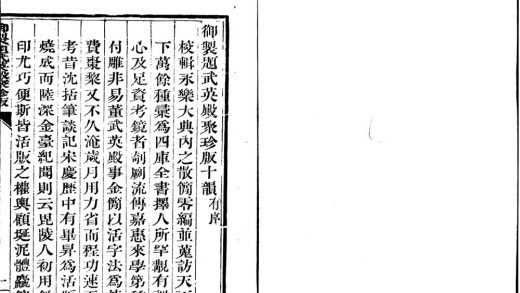 御製題武英殿聚珍版十韻有序
校輯永樂大典內之散簡零編並蒐訪天
下萬餘種彙爲四庫全書擇人所罕覯有
心及足資考鏡者剞劂流傳嘉惠來學第
付雕非易董武英殿事金簡以活字法爲
費棗棃又不久淹歲月用力省而程功速
考昔沈括筆談記宋慶歷中有畢昇爲活
燒成而陸深金臺紀聞則云毘陵人初用
印尤巧便斯皆活版之權輿顧埏泥體麤